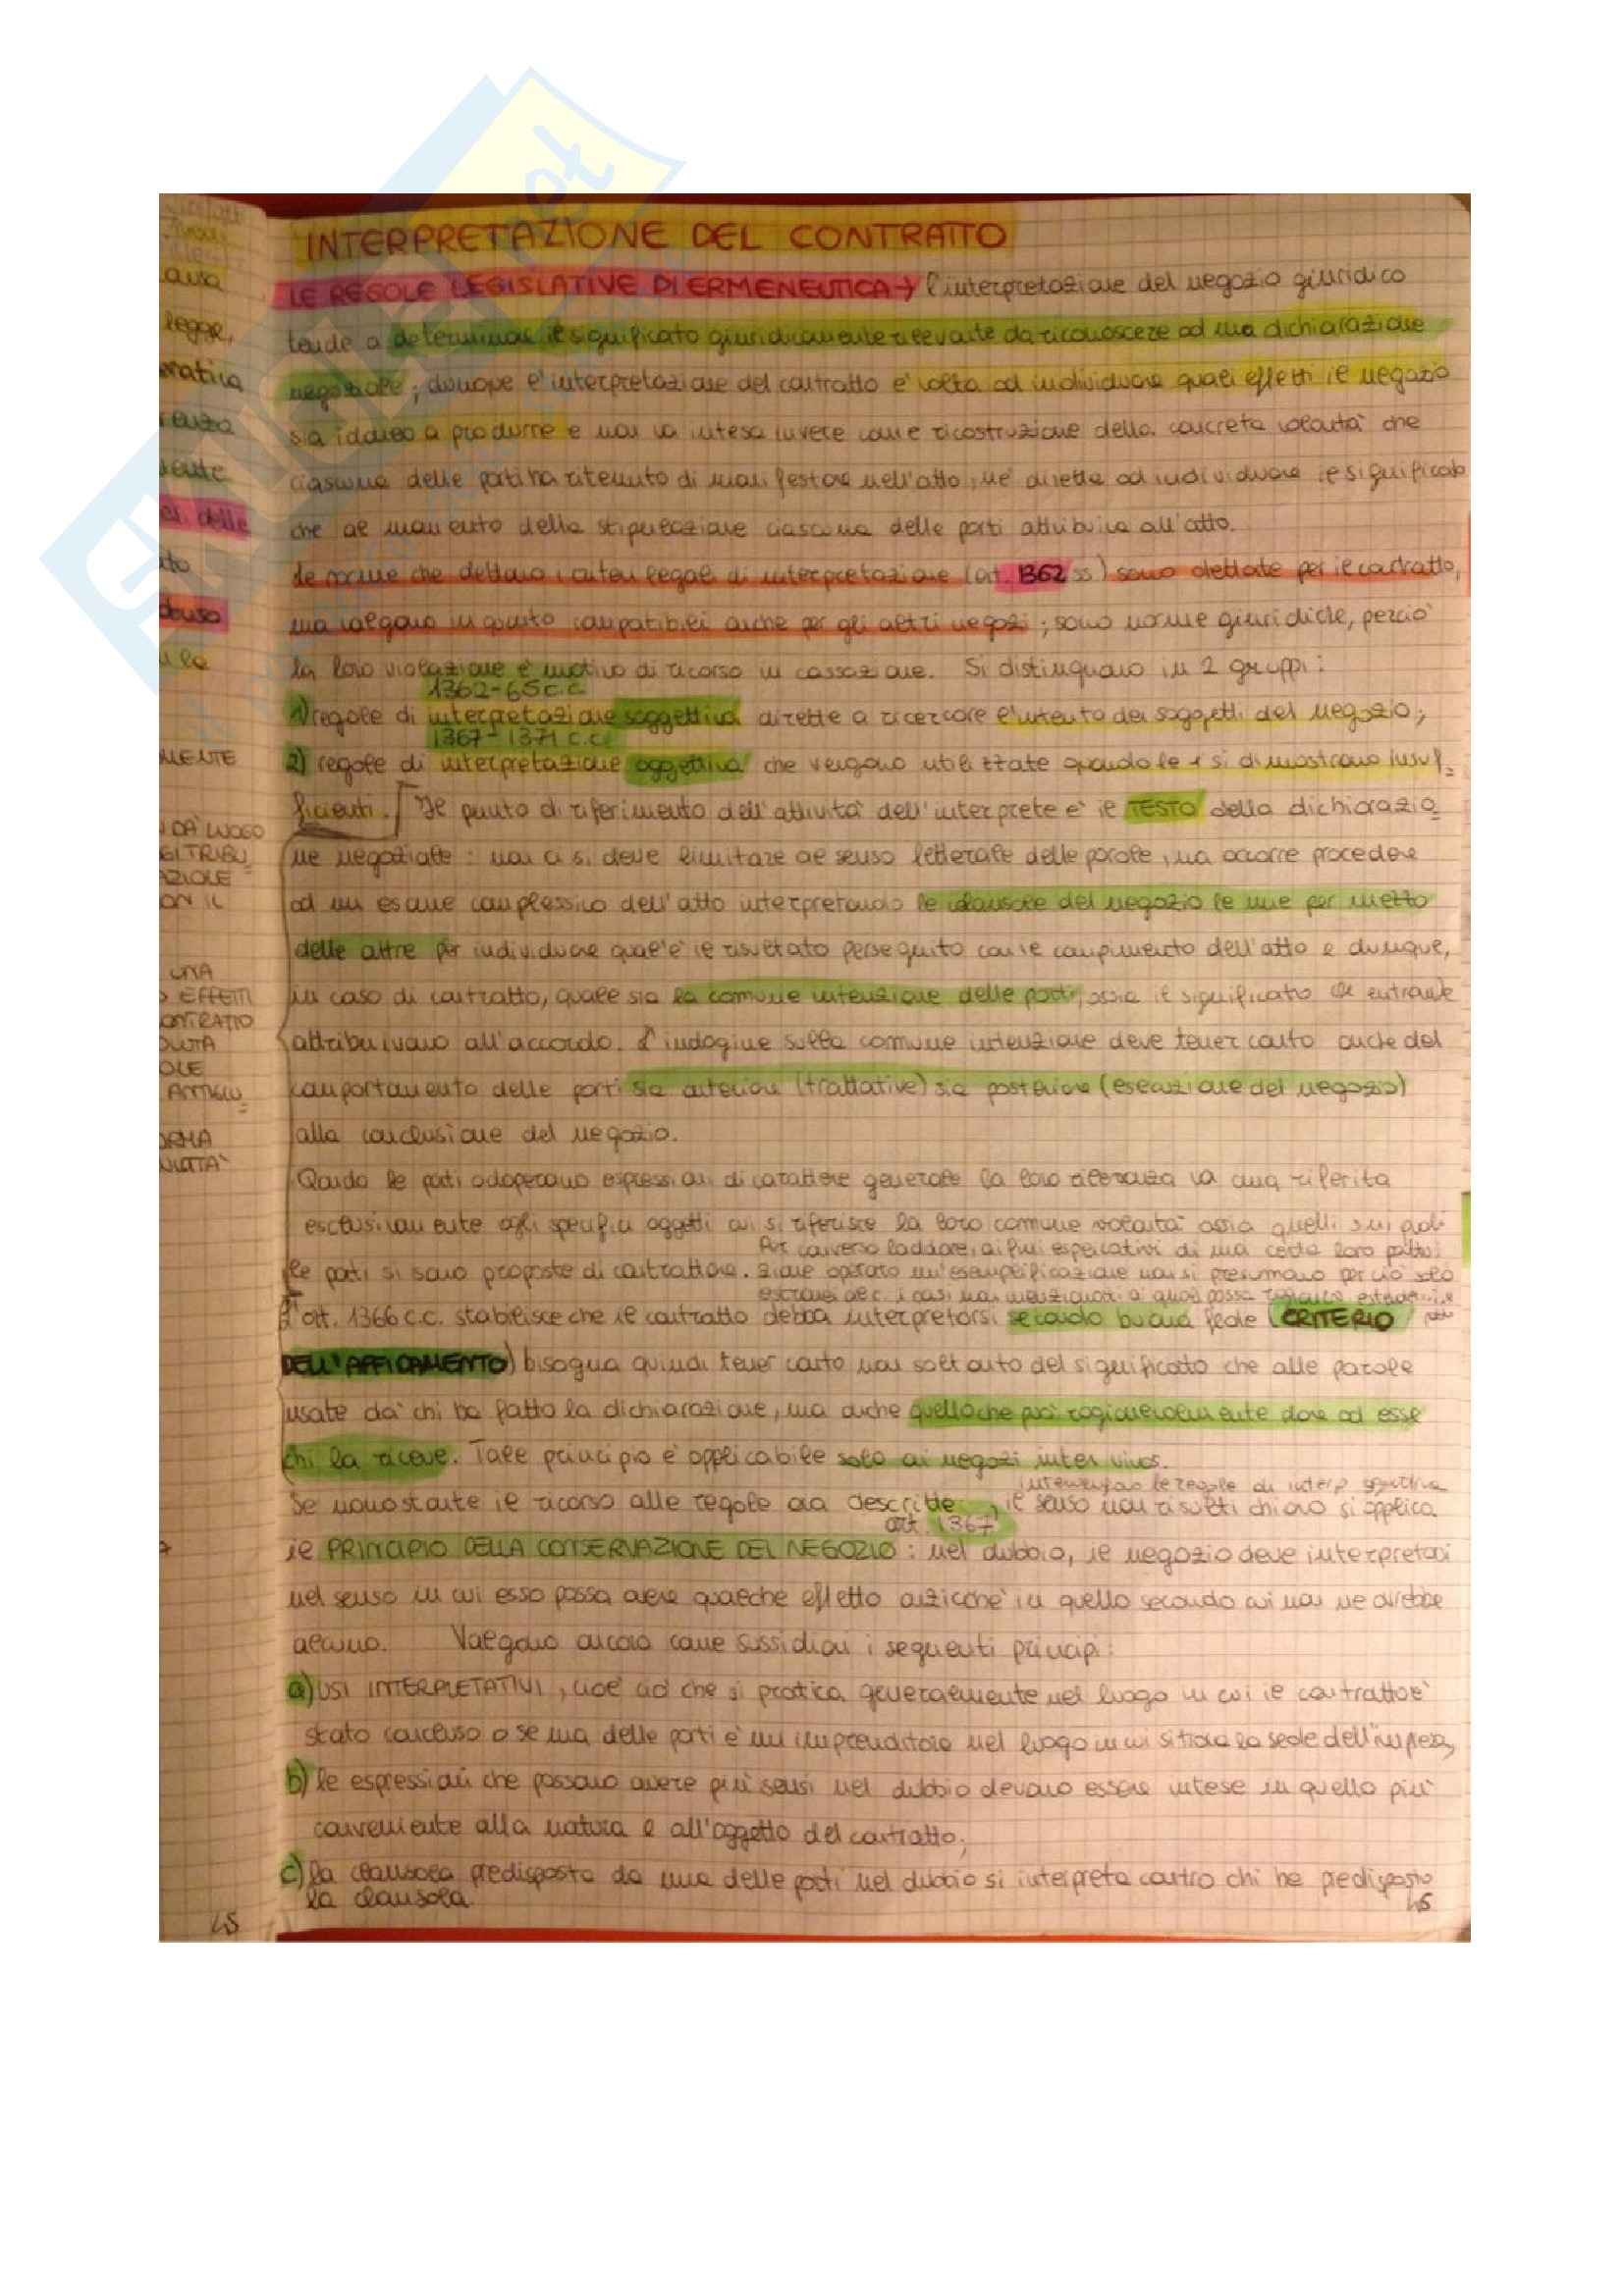 INTERPRETAZIONE DEL CONTRATTO
LE REGOLE LEGISLATIVE DI ERMENEUTICA → l'interpretazione del negozio giuridico
tende a determinare il significato giuridicamente rilevante da riconoscere ad una dichiarazione
negoziale; dunque l'interpretazione del contratto è volta ad individuare quali effetti il negozio
sia idoneo a produrre e non va intesa invece come ricostruzione della concreta volontà che
ciascuna delle parti ha ritenuto di manifestare nell'atto, né diretta ad individuare il significato
che al momento della stipulazione ciascuna delle parti attribuiva all'atto.
Le norme che dettano i criteri legali di interpretazione (art. 1362 ss) sono dettate per il contratto,
ma valgono in quanto compatibili anche per gli altri negozi; sono norme giuridiche, perciò
la loro violazione è motivo di ricorso in cassazione. Si distinguono in 2 gruppi:
1362-65 c.c.
1) regole di interpretazione soggettiva dirette a ricercare l'intento dei soggetti del negozio;
1367-1371 c.c.
2) regole di interpretazione oggettiva che vengono utilizzate quando le 1 si dimostrano insuf=
ficienti. Il punto di riferimento dell'attività dell'interprete è il TESTO della dichiarazio=
ne negoziale: non ci si deve limitare al senso letterale delle parole, ma occorre procedere
ad un esame complessivo dell'atto interpretando le clausole del negozio le une per mezzo
delle altre per individuare qual'è il risultato perseguito con il compimento dell'atto e dunque,
in caso di contratto, quale sia la comune intenzione delle parti, ossia il significato che entrambe
attribuivano all'accordo. L'indagine sulla comune intenzione deve tener conto anche del
comportamento delle parti sia anteriore (trattative) sia posteriore (esecuzione del negozio)
alla conclusione del negozio.
Quando le parti adoperano espressioni di carattere generale la loro rilevanza va riferita
esclusivamente agli specifici oggetti cui si riferisce la loro comune volontà ossia quelli sui quali
Per converso laddove, ai fini esplicativi di una certa loro pattui
le parti si sono proposte di contrattare. zione operato un'esemplificazione non si presumono per ciò solo
esclusi i casi non menzionati ai quali possa
L'art. 1366 c.c. stabilisce che il contratto debba interpretarsi secondo buona fede (CRITERIO
DELL'AFFIDAMENTO) bisogna quindi tener conto non soltanto del significato che alle parole
usate dà chi ha fatto la dichiarazione, ma anche quello che può ragionevolmente dare ad esse
chi la riceve. Tale principio è applicabile solo ai negozi inter vivos.
intervengono le regole di interp. oggettiva
Se nonostante il ricorso alle regole ora descritte, il senso non risulti chiaro si applica
art. 1367
il PRINCIPIO DELLA CONSERVAZIONE DEL NEGOZIO: nel dubbio, il negozio deve interpretarsi
nel senso in cui esso possa avere qualche effetto anzicché in quello secondo cui non ne avrebbe
alcuno. Valgono ancora come sussidiari i seguenti principi:
a) USI INTERPRETATIVI, cioè ciò che si pratica generalmente nel luogo in cui il contratto è
stato concluso o se una delle parti è un imprenditore nel luogo in cui si trova la sede dell'impresa,
b) le espressioni che possono avere più sensi nel dubbio devono essere intese in quello più
conveniente alla natura e all'oggetto del contratto;
c) la clausola predisposta da una delle parti nel dubbio si interpreta contro chi ha predisposto
la clausola
45
legge,
delle
MENTE
DÀ LUOGO
UNA
EFFETTI
45